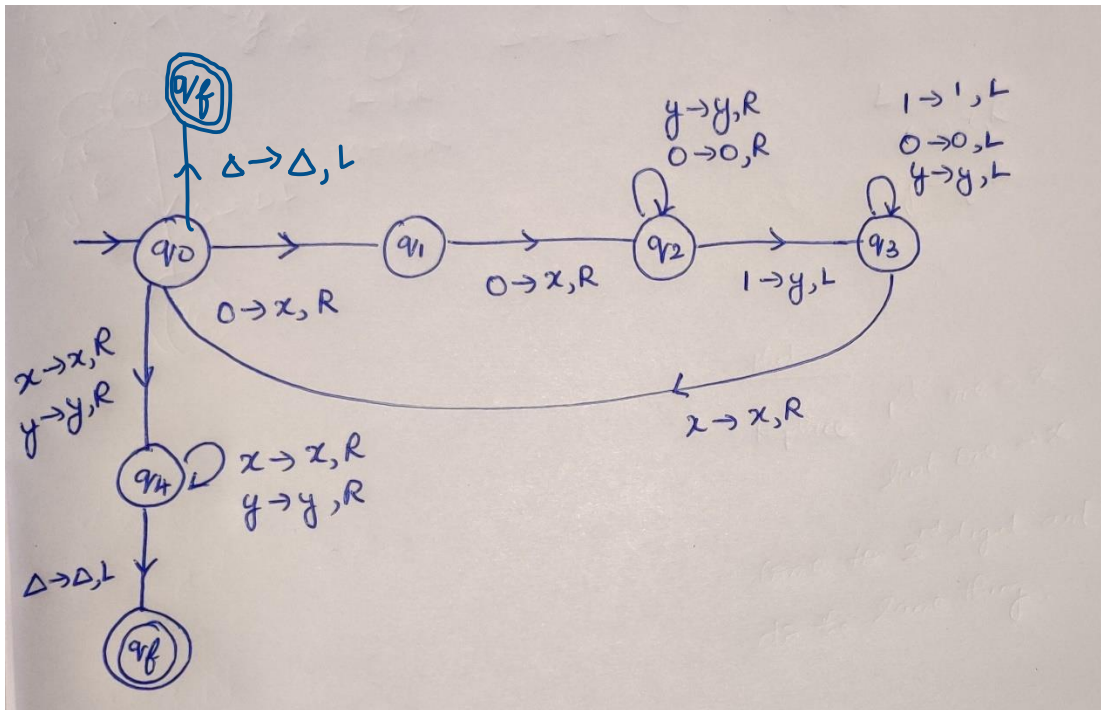 qf
Δ→Δ, L
y→y, R
0→0, R
1→1, L
0→0, L
y→y, L
q0
q1
q2
q3
0→x, R
0→x, R
1→y, L
x→x, R
x→x, R
y→y, R
q4
x→x, R
y→y, R
Δ→Δ, L
qf